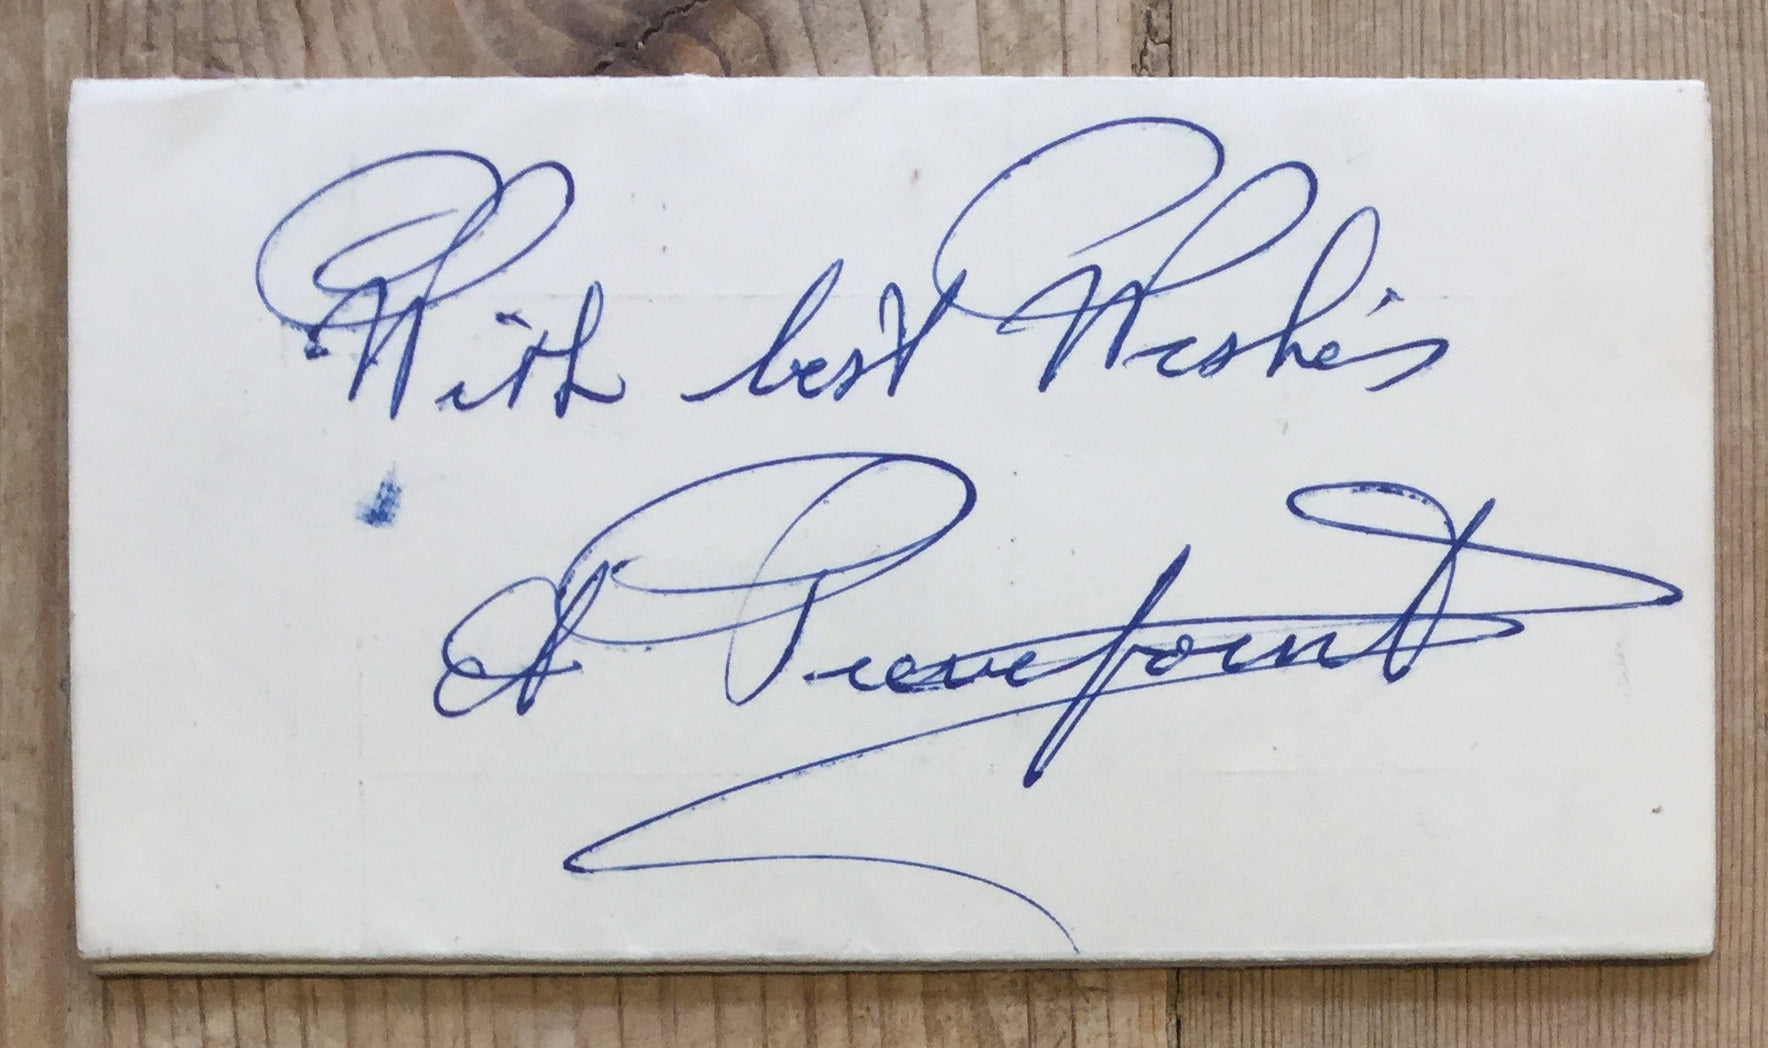 With best Wishes
A Pierrepoint